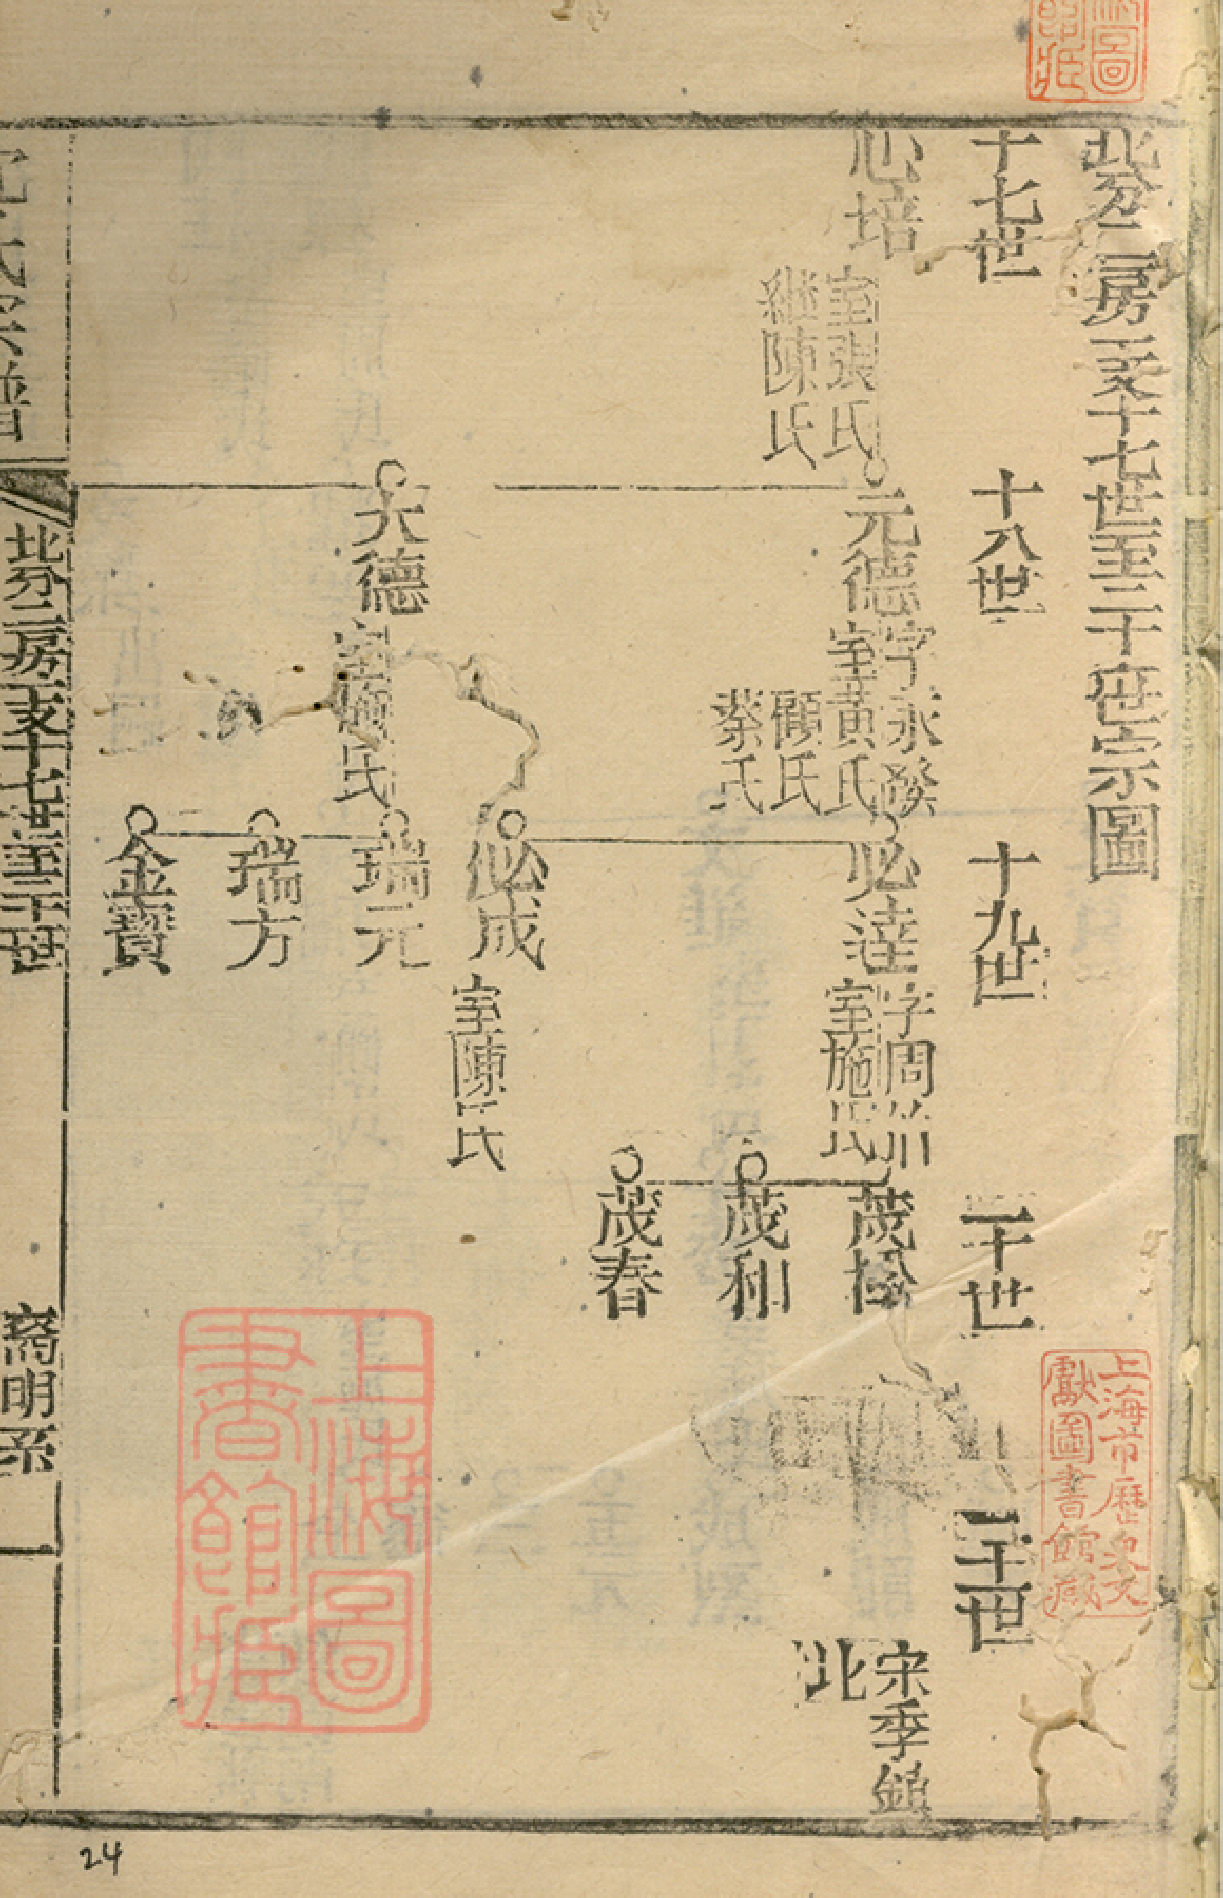 北分二房二支十七世至二十世宗圖
十七世
十八世
十九世
二十世
二十一世
心培
室張氏
繼陳氏
元德
字永發
室黃氏
顧氏
蔡氏
必達
字周
室施氏
茂松
茂和
茂春
宋季鎮
北
必成
室陳氏
大德
室顧氏
瑞元
瑞方
金寶
氏宗譜
北分二房二支十七世至二十世
裔明
一
上海圖書館藏
上海市歷史文獻圖書館藏
24